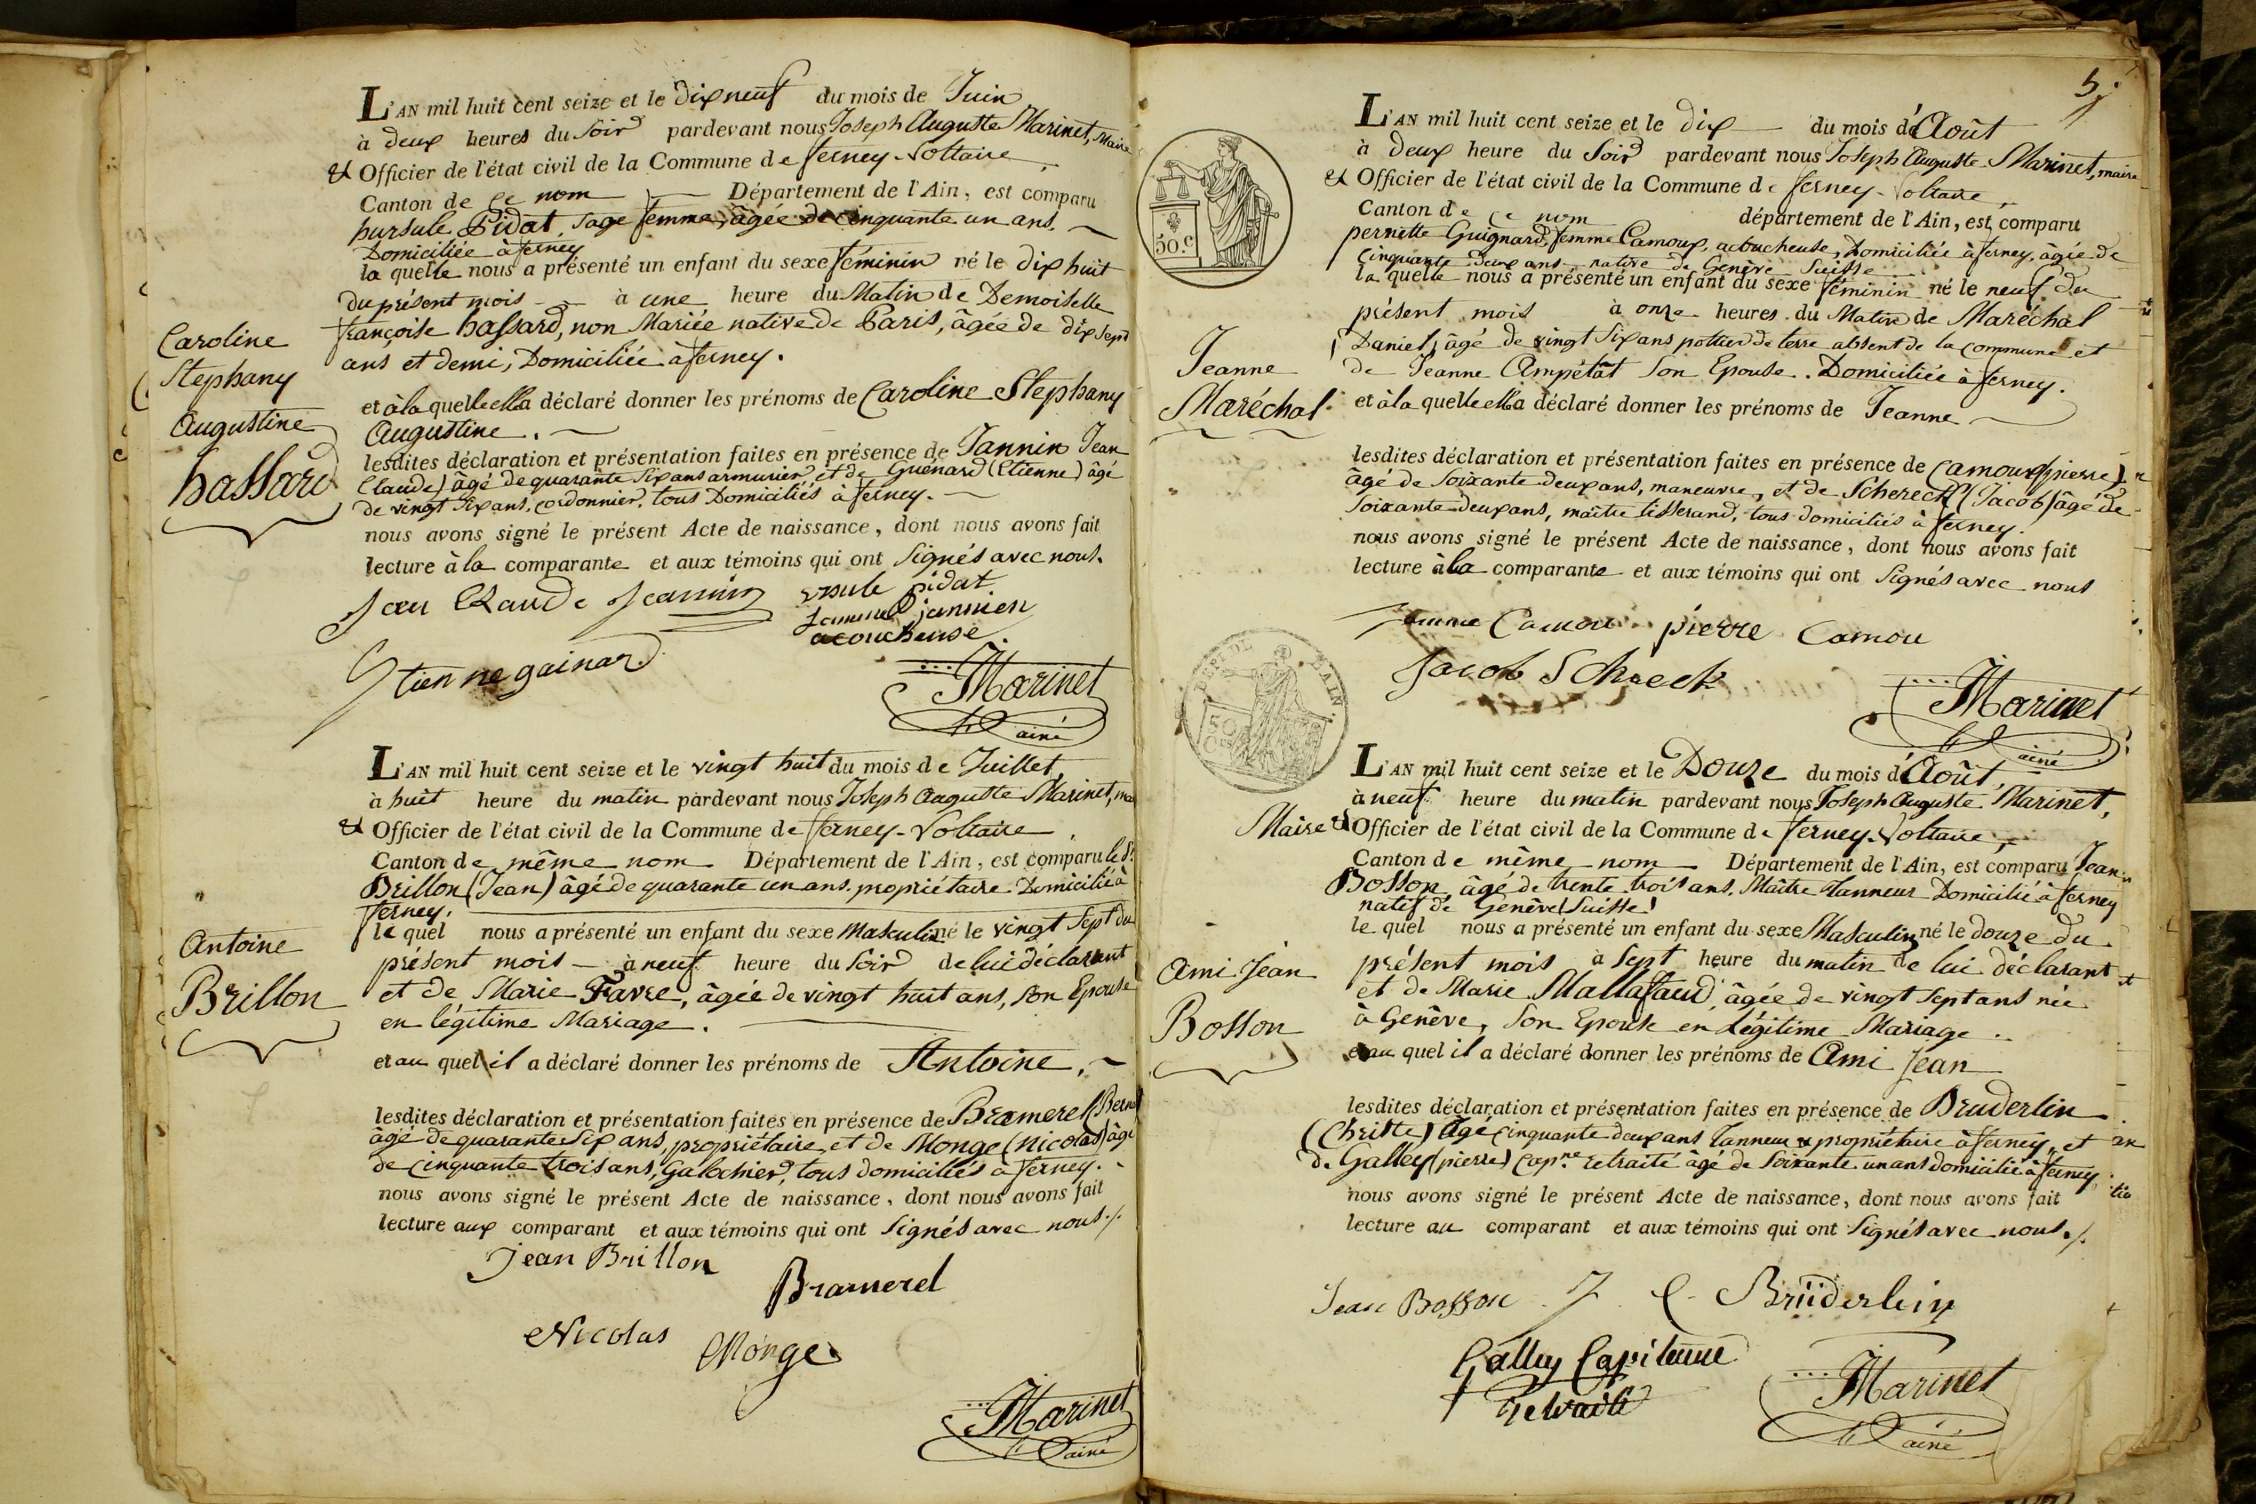 L'AN mil huit cent seize et le dix neuf du mois de Juin
à deux heures du Soir pardevant nous Joseph Auguste Marinet, Maire
& Officier de l'état civil de la Commune de ferney-Voltaire
Canton de ce nom Département de l'Ain, est comparu
hursule Pidat, Sage femme, âgée de cinquante un ans.
Domiciliée à ferney
la quelle nous a présenté un enfant du sexe féminin né le dix huit
du présent mois à une heure du Matin de Demoiselle
françoise hassard, non Mariée native de Paris, âgée de dix Sept
ans et demi, Domiciliée à ferney.
Caroline
Stephany
Augustine
hassard
et à la quelle ella déclaré donner les prénoms de Caroline Stephany
Augustine.
lesdites déclaration et présentation faites en présence de Jannin Jean
Claude) âgé de quarante Six ans armurier, et de Guenard (Etienne) âgé
de vingt Six ans, cordonnier, tous Domiciliés à ferney.
nous avons signé le présent Acte de naissance, dont nous avons fait
lecture à la comparante et aux témoins qui ont Signés avec nous.
Jean Claude Jeannin ursule pidat
femme jannien
acoucheuse
Etienne gainard
JMarinet
ainé
L'AN mil huit cent seize et le vingt huit du mois de Juillet
à huit heure du matin pardevant nous Joseph Auguste Marinet, mai
& Officier de l'état civil de la Commune de ferney-Voltaire
Canton de même nom Département de l'Ain, est comparu le Sr.
Brillon (Jean) âgé de quarante un ans. propriétaire Domicilié à
ferney.
le quel nous a présenté un enfant du sexe Masculin né le vingt Sept du
présent mois à neuf heure du Soir de lui déclarant
et de Marie Favre, âgée de vingt huit ans, Son Epouse
en légitime Mariage.
Antoine
Brillon
et au quel il a déclaré donner les prénoms de Antoine,
lesdites déclaration et présentation faites en présence de Bramerel (Bern
âgé de quarante Six ans, propriétaire, et de Monge (nicolas) âgé
de cinquante trois ans, Galochier, tous domiciliés à ferney.
nous avons signé le présent Acte de naissance, dont nous avons fait
lecture aux comparant et aux témoins qui ont Signés avec nous./.
jean Brillon
Bramerel
Nicolas Monge
JMarinet
ainé
5
L'AN mil huit cent seize et le dix du mois d'Août
à Deux heure du Soir pardevant nous Joseph Auguste Marinet, maire
& Officier de l'état civil de la Commune de ferney-Voltaire,
Canton de ce nom département de l'Ain, est comparu
pernette Guignard, femme Camoux, acoucheuse, Domiciliée à ferney, âgée de
Cinquante deux ans native de Genève Suisse
la quelle nous a présenté un enfant du sexe féminin né le neuf du
présent mois à onze heures du Matin de Maréchal
(Daniel) âgé de vingt Six ans pottier de terre absent de la commune et
de Jeanne Ampétât Son Epouse. Domiciliée à ferney.
50.c
Jeanne
Maréchal.
et à la quelle ella déclaré donner les prénoms de Jeanne
lesdites déclaration et présentation faites en présence de Camoux (pierre)
âgé de Soixante deux ans, maneuvre, et de Schereck (Jacob) âgé de
Soixante deux ans, maître tisserand, tous domiciliés à ferney.
nous avons signé le présent Acte de naissance, dont nous avons fait
lecture à la comparante et aux témoins qui ont Signés avec nous
famme Camou pierre Camou
Jacob Schreck
JMarinet
ainé
DEPT. DE L'AIN.
50
L'AN mil huit cent seize et le Douze du mois d'Août,
à neuf heure du matin pardevant nous Joseph Auguste Marinet,
Maire & Officier de l'état civil de la Commune de ferney-Voltaire,
Canton de même nom Département de l'Ain, est comparu Jean
Bosson, âgé de trente trois ans. Maître Tanneur Domicilié à ferney
natif de Genève (Suisse)
le quel nous a présenté un enfant du sexe Masculin né le douze du
présent mois à Sept heure du matin de lui déclarant
et de Marie Mallafaud, âgée de vingt Sept ans née
à Genève, Son Epouse en Légitime Mariage.
Ami Jean
Bosson
et au quel il a déclaré donner les prénoms de Ami Jean
lesdites déclaration et présentation faites en présence de Bruderlin
(Christe) âgé cinquante deux ans Tanneur & propriétaire à ferney, et
de Galley (pierre) Capne. retraité âgé de Soixante un ans domicilié à ferney
nous avons signé le présent Acte de naissance, dont nous avons fait
lecture au comparant et aux témoins qui ont Signés avec nous./.
Jean Bosson J. C. Brüderlein
Galley Capitaine
retraité
JMarinet
ainé